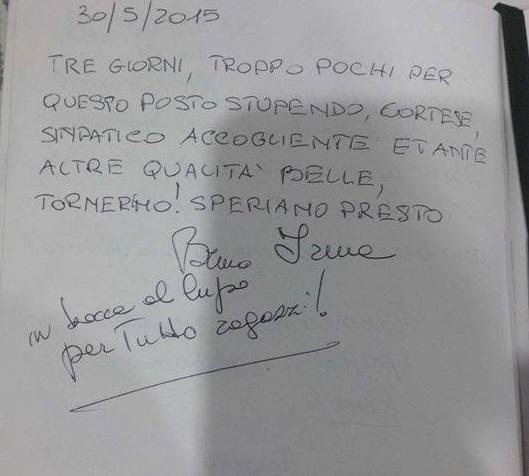 30/5/2015
TRE GIORNI, TROPPO POCHI PER
QUESTO POSTO STUPENDO, CORTESE,
SINPATICO ACCOGLIENTE E TANTE
ALTRE QUALITA' BELLE,
TORNERMO! SPERIAMO PRESTO
in bocca al lupo
per Tutto ragazzi!